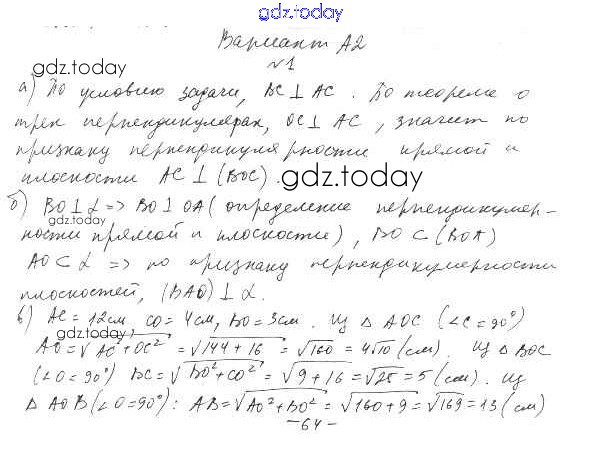 gdz.today
Вариант А2
№1
gdz.today
а) По условию задачи, BC ⊥ AC. По теореме о
трех перпендикулярах, OC ⊥ AC, значит по
признаку перпендикулярности прямой и
плоскости AC ⊥ (BOC).
gdz.today
б) BO ⊥ α => BO ⊥ OA (определение перпендикуляр-
gdz.today
ности прямой и плоскости), BO ⊂ (BOA)
AO ⊂ α => по признаку перпендикулярности
плоскостей, (BAO) ⊥ α.
в) AC = 12см, CO = 4см, BO = 3см. Из △ AOC (∠C = 90°)
gdz.today
AO = √AC² + OC² = √144 + 16 = √160 = 4√10 (см). Из △ BOC
(∠O = 90°) BC = √BO² + CO² = √9 + 16 = √25 = 5 (см). Из
△ AOB (∠O = 90°): AB = √AO² + BO² = √160 + 9 = √169 = 13 (см)
-64-